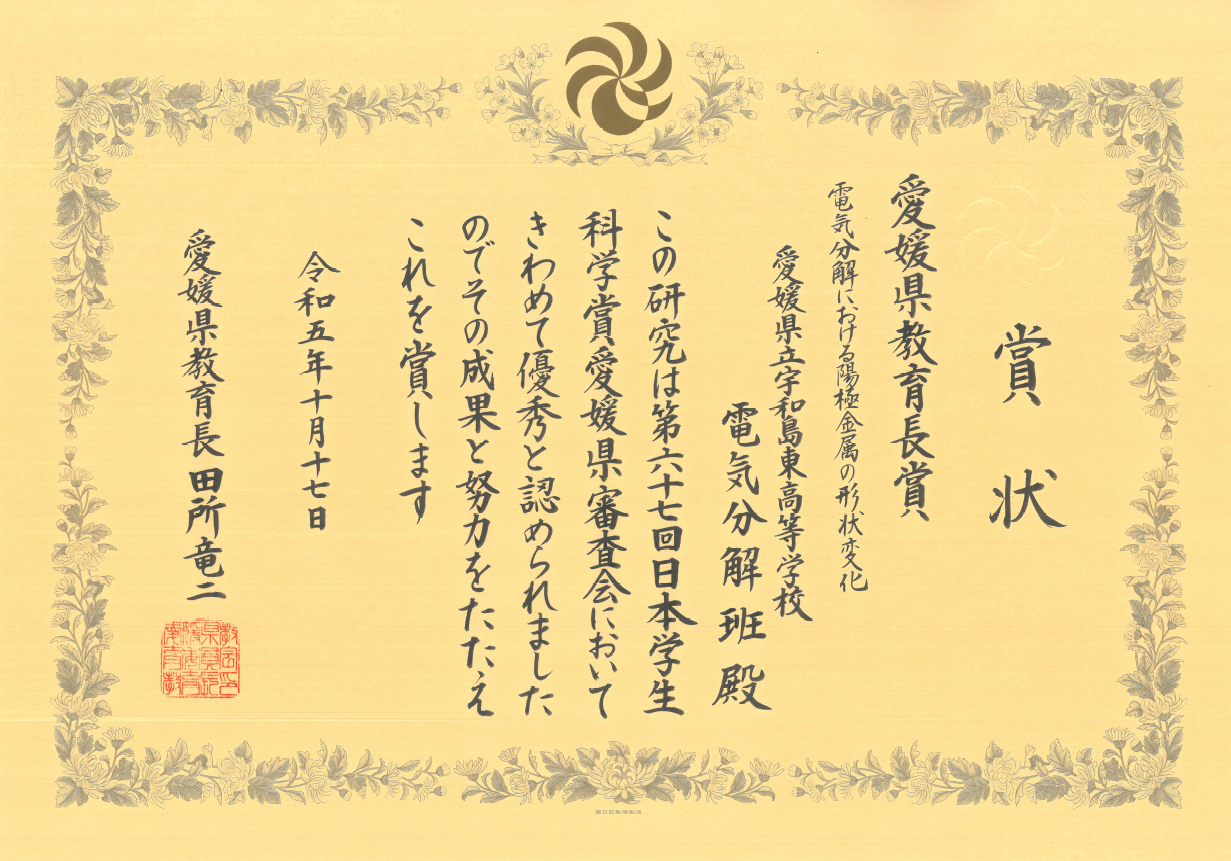 賞状
愛媛県教育長賞
電気分解における陽極金属の形状変化
愛媛県立宇和島東高等学校
電気分解班殿
この研究は第六十七回日本学生
科学賞愛媛県審査会において
きわめて優秀と認められました
のでその成果と努力をたたえ
これを賞します
令和五年十月十七日
愛媛県教育長田所竜二